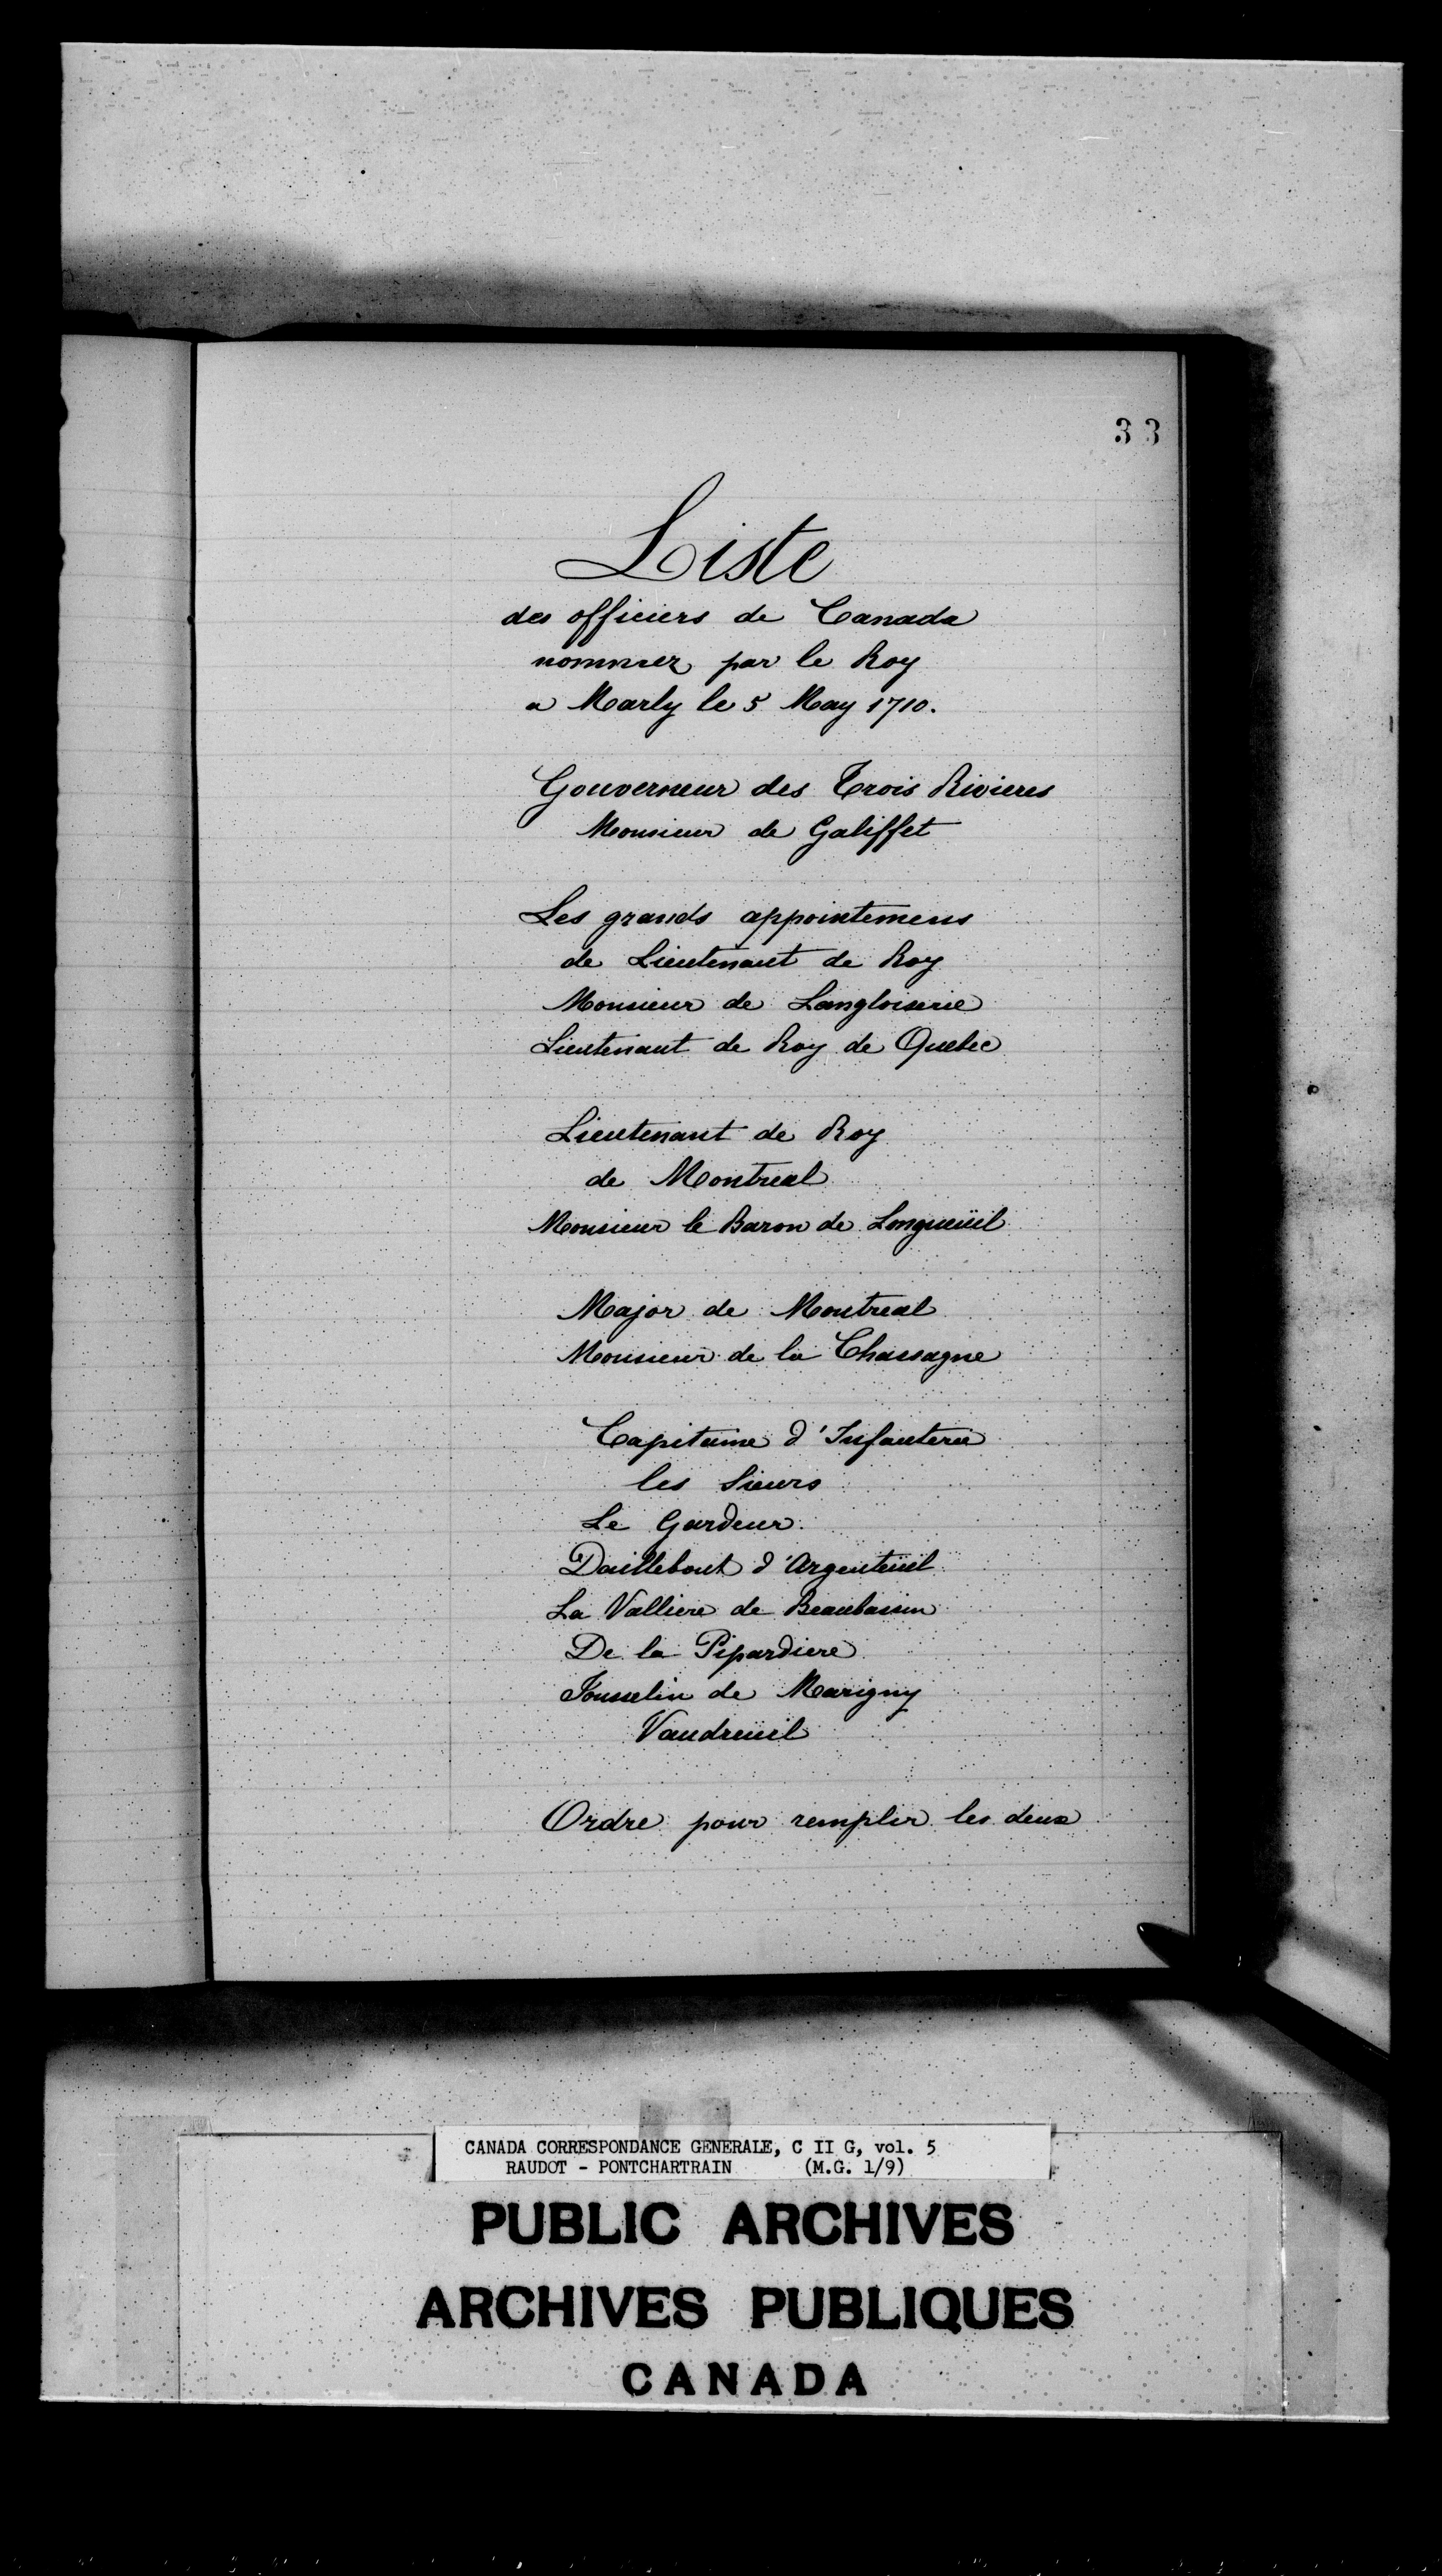 33
Liste
des officiers de Canada
nommez par le Roy
a Marly le 5 May 1710.
Gouverneur des Trois Rivieres
Monsieur de Galiffet
Les grands appointemens
de Lieutenant de Roy
Monsieur de Langloiserie
Lieutenant de Roy de Quebec
Lieutenant de Roy
de Montreal
Monsieur le Baron de Longueüil
Major de Montreal
Monsieur de la Chassagne
Capitaine d'Infanterie
les Sieurs
Le Gardeur
Daillebout d'Argenteüil
La Valliere de Beaubassin
De la Pipardiere
Jousselin de Marigny
Vaudreüil
Ordre pour remplir les deux
CANADA CORRESPONDANCE GENERALE, C II G, vol. 5
RAUDOT - PONTCHARTRAIN (M.G. 1/9)
PUBLIC ARCHIVES
ARCHIVES PUBLIQUES
CANADA